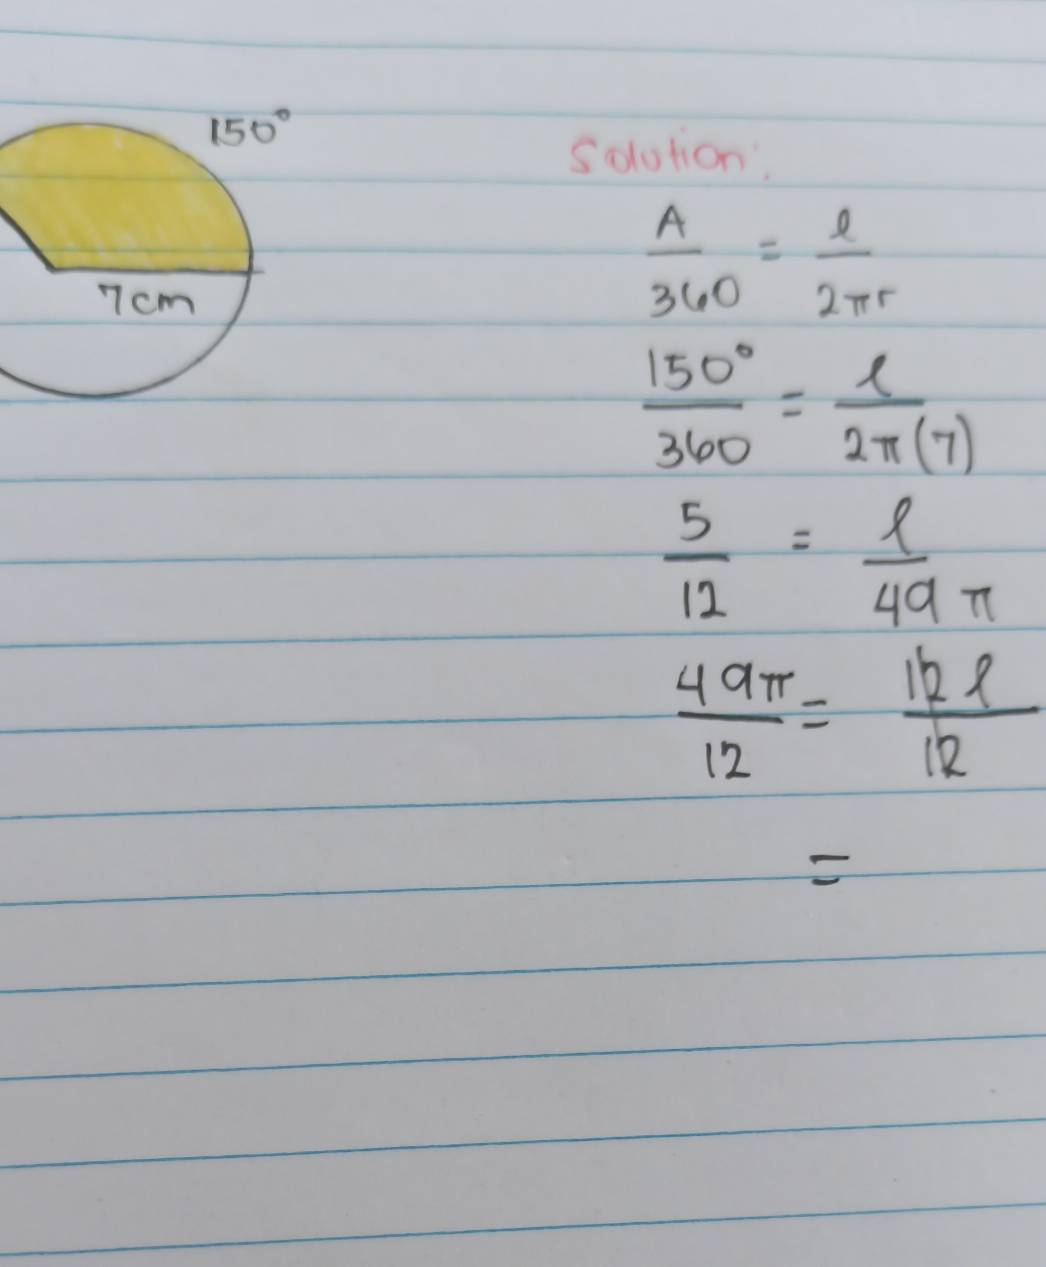 150°
7cm
Solution:
A/360 = l/2πr
150°/360 = l/2π(7)
5/12 = l/49π
49π/12 = 12l/12
=